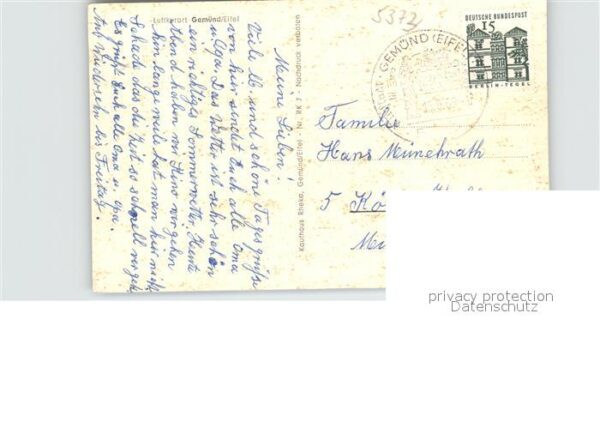 Luftkurort Gemünd/Eifel
Meine Lieben!
Viele lb. und schöne Tagesgrüße
von hier sendet Euch alle Oma
u. Opa. Das Wetter ist sehr schön
ein richtiges Sommerwetter. Heute
Abend haben wir Kino vorgesehen
Kein lange weile hat man hier nicht
Schade das die Zeit so schnell vergeht
Es grüßt Euch alle Oma u. Opa.
Auf Wiedersehn bis Freitag.
Kaufhaus Rheka, Gemünd/Eifel - Nr. RK 7 - Nachdruck verboten
5372
GEMÜND (EIFEL)
DEUTSCHE BUNDESPOST
15
BERLIN-TEGEL
Familie
Hans Münchrath
5 Kö
privacy protection
Datenschutz